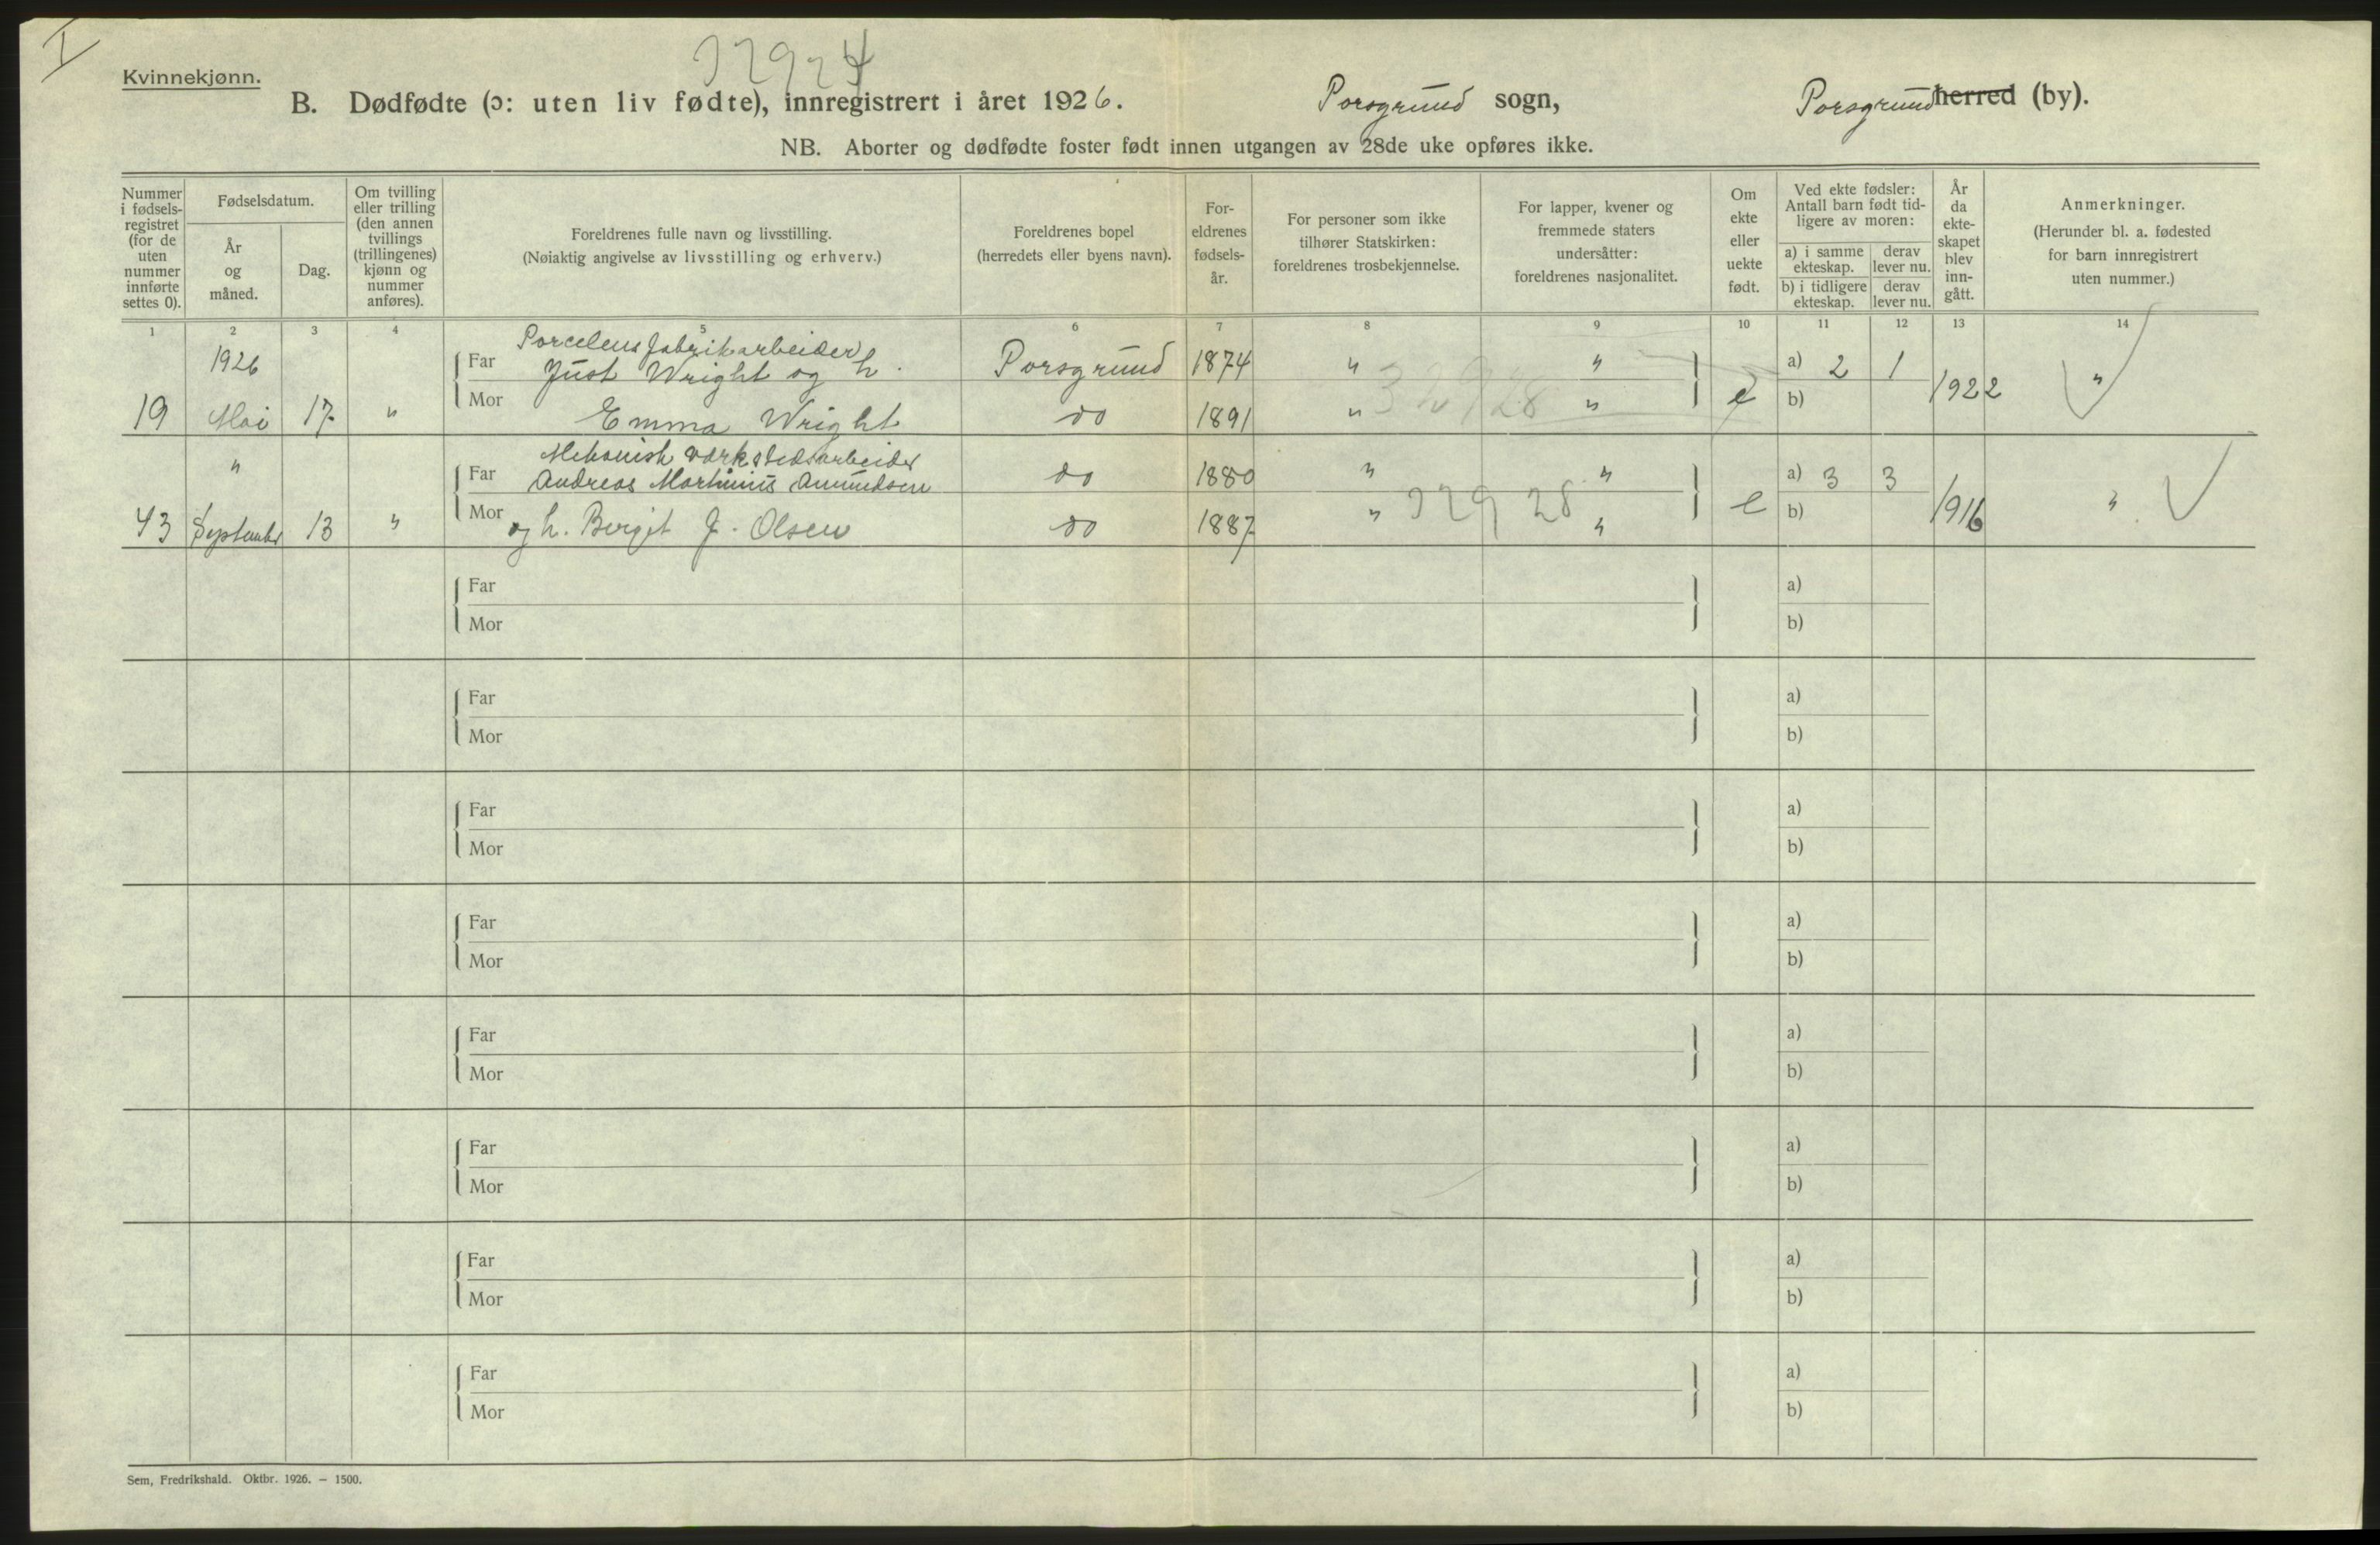 I
32924
Kvinnekjønn.
B. Dødfødte (ɔ: uten liv fødte), innregistrert i året 1926. Porsgrund sogn, Porsgrund herred (by).
NB. Aborter og dødfødte foster født innen utgangen av 28de uke opføres ikke.
Nummer i fødsels-registret (for de uten nummer innførte settes 0).
Fødselsdatum.
År og måned.
Dag.
Om tvilling eller trilling (den annen tvillings (trillingenes) kjønn og nummer anføres).
Foreldrenes fulle navn og livsstilling.
(Nøiaktig angivelse av livsstilling og erhverv.)
Foreldrenes bopel
(herredets eller byens navn).
For-eldrenes fødsels-år.
For personer som ikke tilhører Statskirken: foreldrenes trosbekjennelse.
For lapper, kvener og fremmede staters undersåtter: foreldrenes nasjonalitet.
Om ekte eller uekte født.
Ved ekte fødsler: Antall barn født tid-ligere av moren:
a) i samme ekteskap. derav lever nu.
b) i tidligere ekteskap. derav lever nu.
År da ekte-skapet blev inn-gått.
Anmerkninger.
(Herunder bl. a. fødested for barn innregistrert uten nummer.)
1 2 3 4 5 6 7 8 9 10 11 12 13 14
Porcelensfabrikarbeider
1926 Far Just Wright og h. Porsgrund 1874 " " a) 2 1
32928
19 Mai 17 " Mor Emma Wright do 1891 " " e b) 1922 "
Mekanisk værkstedsarbeider
" Far Andreas Martinius Amundsen do 1880 " " a) 3 3
32928
43 September 13 " Mor og h. Bergit J. Olsen do 1887 " " e b) 1916 "
Far a)
Mor b)
Far a)
Mor b)
Far a)
Mor b)
Far a)
Mor b)
Far a)
Mor b)
Far a)
Mor b)
Far a)
Mor b)
Far a)
Mor b)
Sem, Fredrikshald. Oktbr. 1926. – 1500.